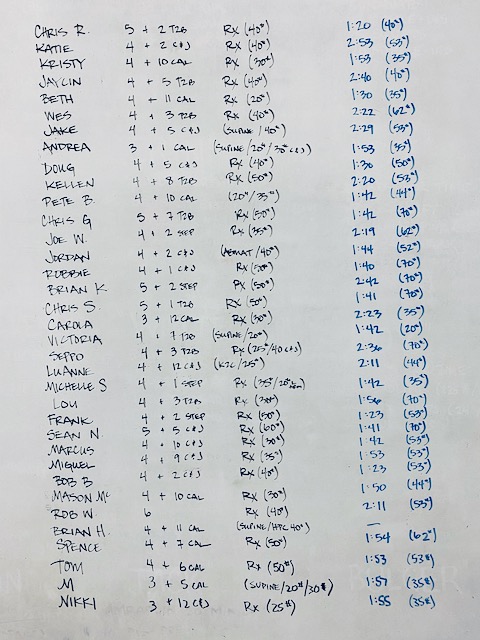 CHRIS R. 5 + 2 T2B RX (40#) 1:20 (40#)
KATIE 4 + 2 C&J RX (40#) 2:53 (53#)
KRISTY 4 + 10 CAL RX (30#) 1:53 (35#)
JAYLIN 4 + 5 T2B RX (40#) 2:40 (40#)
BETH 4 + 11 CAL RX (20#) 1:30 (35#)
WES 4 + 3 T2B RX (40#) 2:22 (62#)
JAKE 4 + 5 C&J (SUPINE/40#) 2:29 (53#)
ANDREA 3 + 1 CAL (SUPINE/20#/30# C&J) 1:53 (35#)
DOUG 4 + 5 C&J RX (40#) 1:30 (50#)
KELLEN 4 + 8 T2B RX (50#) 2:20 (53#)
PETE B 4 + 10 CAL (20#/35#) 1:42 (44#)
CHRIS G 5 + 7 T2B RX (50#) 1:42 (70#)
JOE W. 4 + 2 STEP RX (35#) 2:19 (62#)
JORDAN 4 + 2 C&J (/40#) 1:44 (52#)
ROBBIE 4 + 1 C&J RX (50#) 1:40 (70#)
BRIAN K 5 + 2 STEP RX (50#) 2:42 (70#)
CHRIS S. 5 + 1 T2B RX (50#) 1:41 (70#)
CAROLA 3 + 12 CAL RX (30#) 2:23 (35#)
VICTORIA 4 + 7 T2B (SUPINE/20#) 1:42 (20#)
SEPPO 4 + 3 T2B RX (25#/40 C&J) 2:36 (70#)
LUANNE 4 + 12 C&J (K2C/25#) 2:11 (44#)
MICHELLE S 4 + 1 STEP RX (35#/20#) 1:42 (35#)
LOU 4 + 3 T2B RX (30#) 1:56 (70#)
FRANK 4 + 2 STEP RX (50#) 1:23 (53#)
SEAN N. 5 + 5 C&J RX (60#) 1:41 (70#)
MARCUS 4 + 10 C&J RX (30#) 1:42 (53#)
MIGUEL 4 + 9 C&J RX (35#) 1:53 (53#)
BOB B 4 + 2 C&J RX (40#) 1:23 (53#)
MASON MC 4 + 10 CAL RX (30#) 1:50 (44#)
ROB W 6 RX (40#) 2:11 (53#)
BRIAN H. 4 + 11 CAL (SUPINE/HPC 40#) —
SPENCE 4 + 7 CAL RX (50#) 1:54 (62#)
TOM 4 + 6 CAL RX (50#) 1:53 (53#)
M 3 + 5 CAL (SUPINE/20#/30#) 1:57 (35#)
NIKKI 3 + 12 C&J RX (25#) 1:55 (35#)